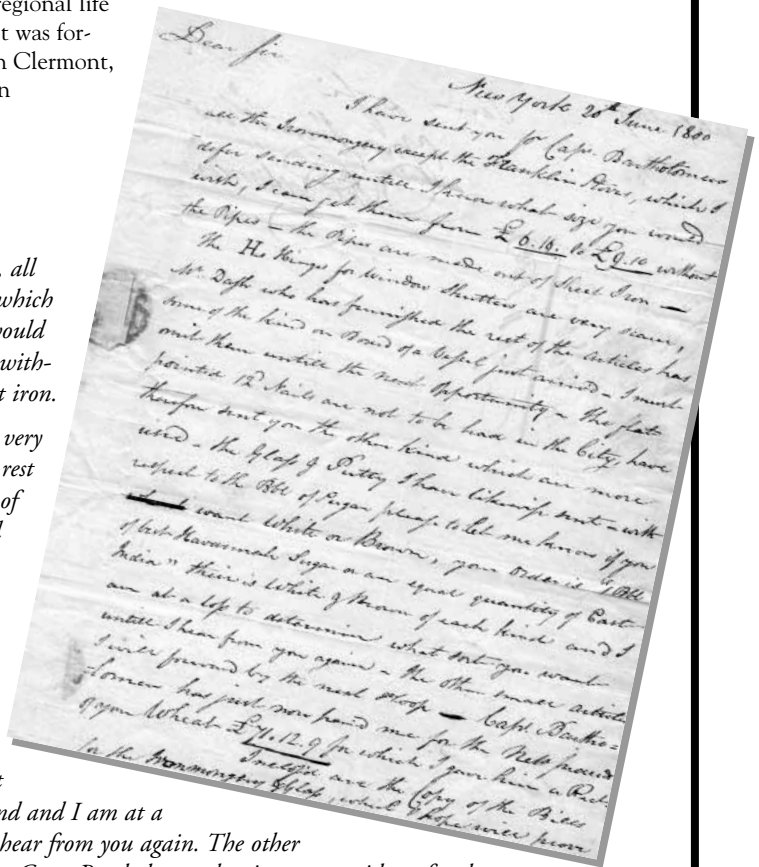 regional life
t was for-
n Clermont,
n
, all
which
would
with-
t iron.
very
rest
of
d
t
nd and I am at a
hear from you again. The other
Dear Sir
New York 20th June 1800
I have sent you for Capt. Bartholomew
all the Ironmongery except the Franklin Stoves, which I
defer sending untill I know what size you would
wish, I can get them from £ 6.16. to £9.10 without
the Pipes – the Pipes are made out of Sheet Iron –
the Ho Hinges for Window Shutters are very scarce,
Mr. Dash who has furnished the rest of the articles has
some of the kind on Board of a Vessel just arrived – I must
omit them untill the next Opportunity – the flat
pointed 12d Nails are not to be had in the City have
therefore sent you the other kind which are more
used – the Glass & Putty I have likewise sent – with
respect to the Bbl of Sugar please to let me know if you
want White or Brown, your Order is "1 Bbl
of best Havannah Sugar or an equal quantity of East
India" there is White & Brown of each kind and I
am at a loss to determine what sort you want
untill I hear from you again – the other small articles
I will forward by the next sloop – Capt. Bartho=
lomew has just now paid me for the Nett proceeds
of your Wheat £71.12.9 for which I gave him a Rect.
Inclosed are the Copy of the Bills
for the Ironmongery & Glass, which I hope will prove